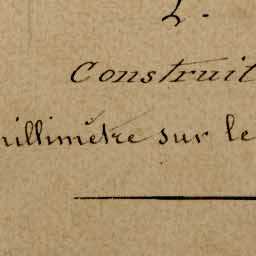 Construit
millimètre sur le